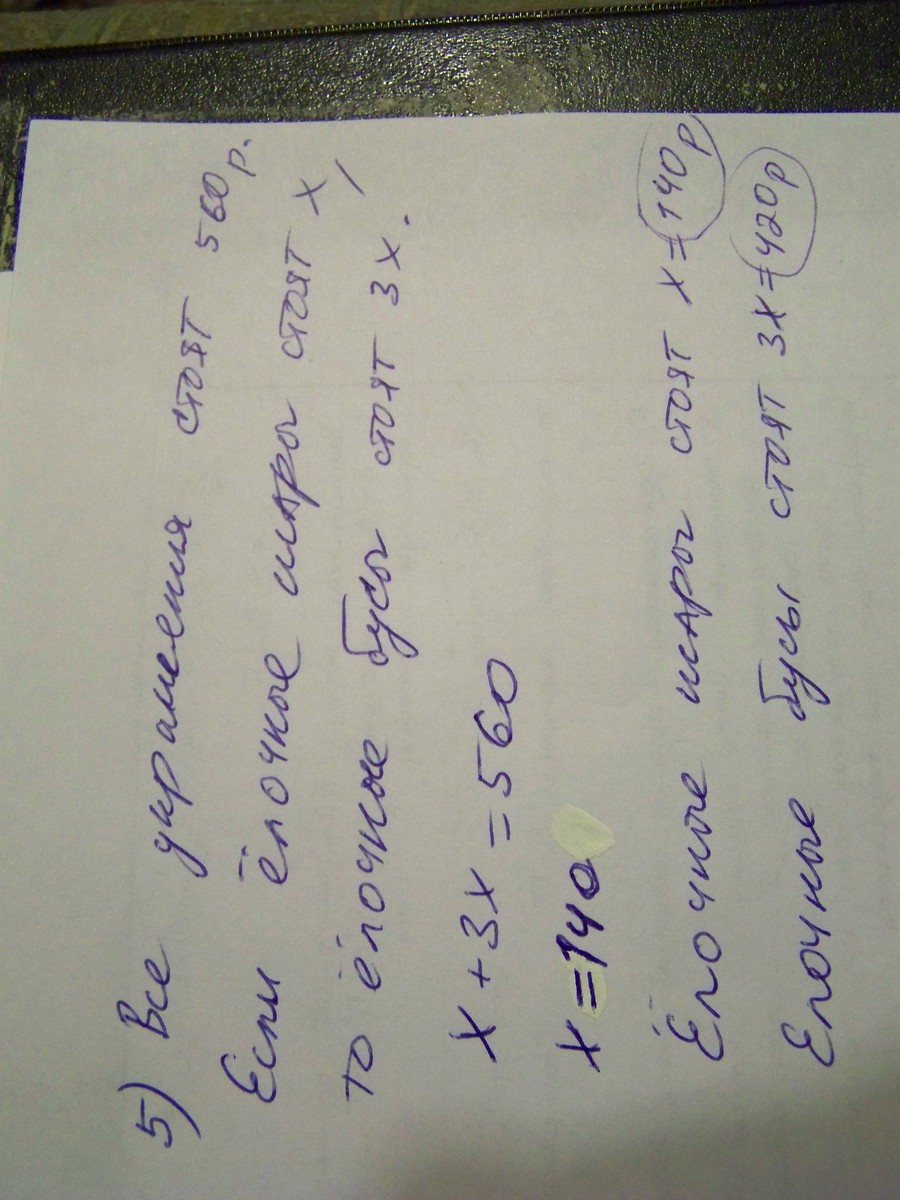 5) Все украшения стоят 560 р.
Если ёлочные шары стоят х,
то ёлочные бусы стоят 3х.
х + 3х = 560
х = 140
Ёлочные шары стоят х = 140р
Елочные бусы стоят 3х = 420р